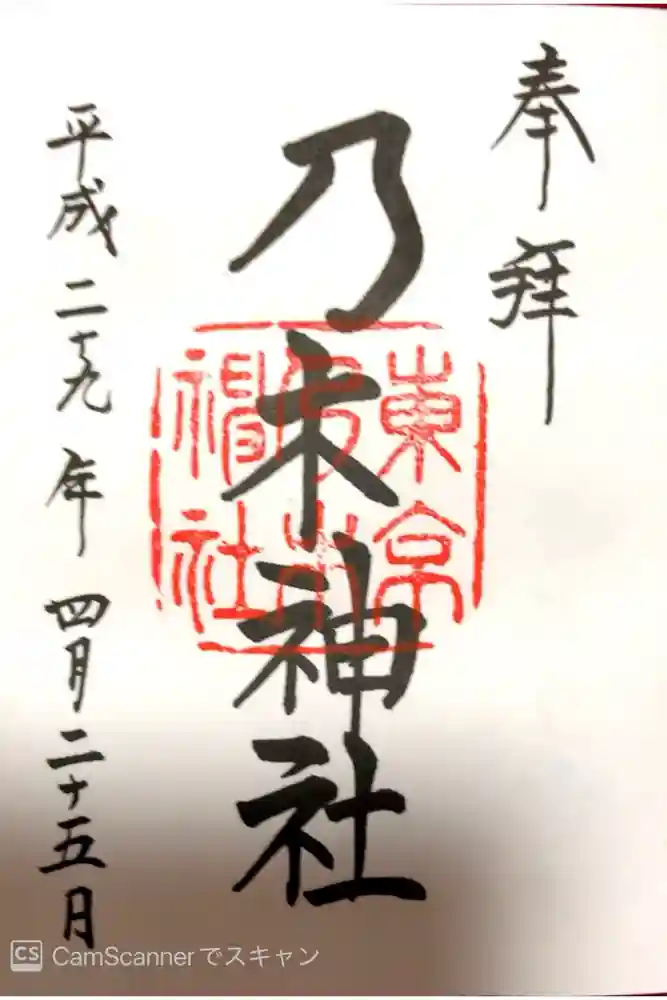 奉拝
乃木神社
東京
乃木
神社
平成二十九年四月二十五月
CS CamScannerでスキャン